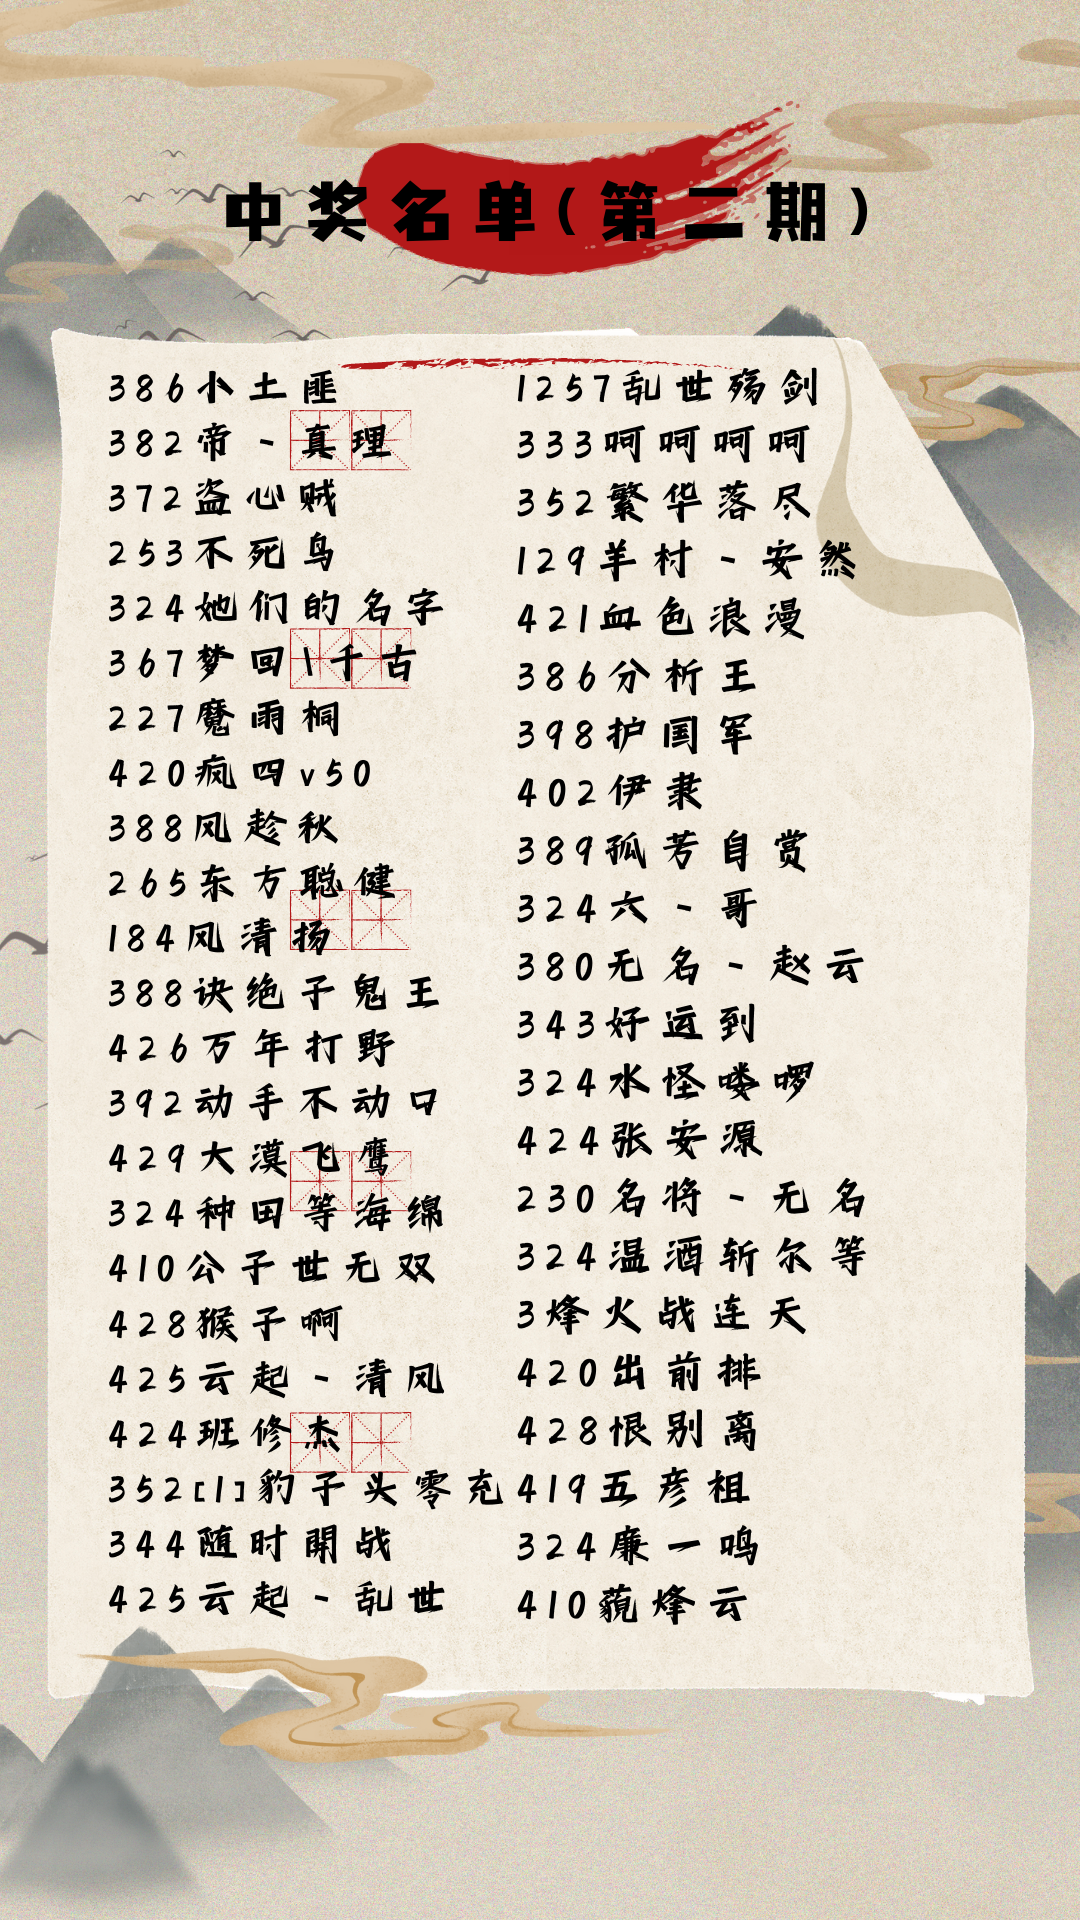 中奖名单(第二期)
386小土匪
382帝-真理
372盗心贼
253不死鸟
324她们的名字
367梦回1千古
227魔雨桐
420疯四v50
388风趁秋
265东方聪健
184风清扬
388诀绝子鬼王
426万年打野
392动手不动口
429大漠飞鹰
324种田等海绵
410公子世无双
428猴子啊
425云起-清风
424班修杰
352[1]豹子头零充
344随时開战
425云起-乱世
1257乱世殇剑
333呵呵呵呵
352繁华落尽
129羊村-安然
421血色浪漫
386分析王
398护国军
402伊隶
389孤芳自赏
324六-哥
380无名-赵云
343好运到
324水怪喽啰
424张安源
230名将-无名
324温酒斩尔等
3烽火战连天
420出前排
428恨别离
419五彦祖
324廉一鸣
410藐烽云